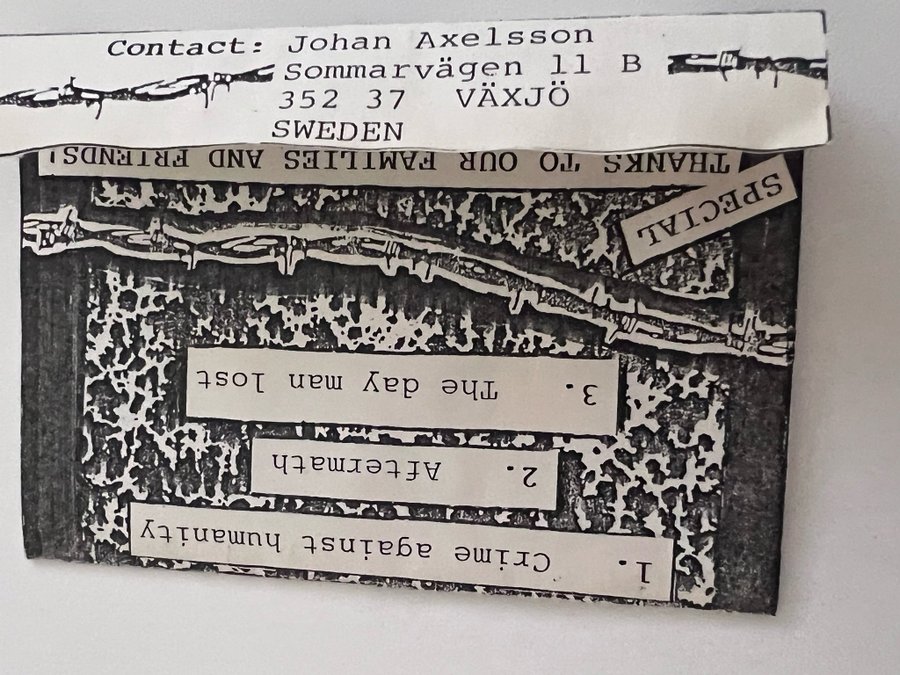 Contact: Johan Axelsson
Sommarvägen 11 B
352 37 VÄXJÖ
SWEDEN
1. Crime against humanity
2. Aftermath
3. The day man lost
SPECIAL
THANKS TO OUR FAMILIES AND FRIENDS!